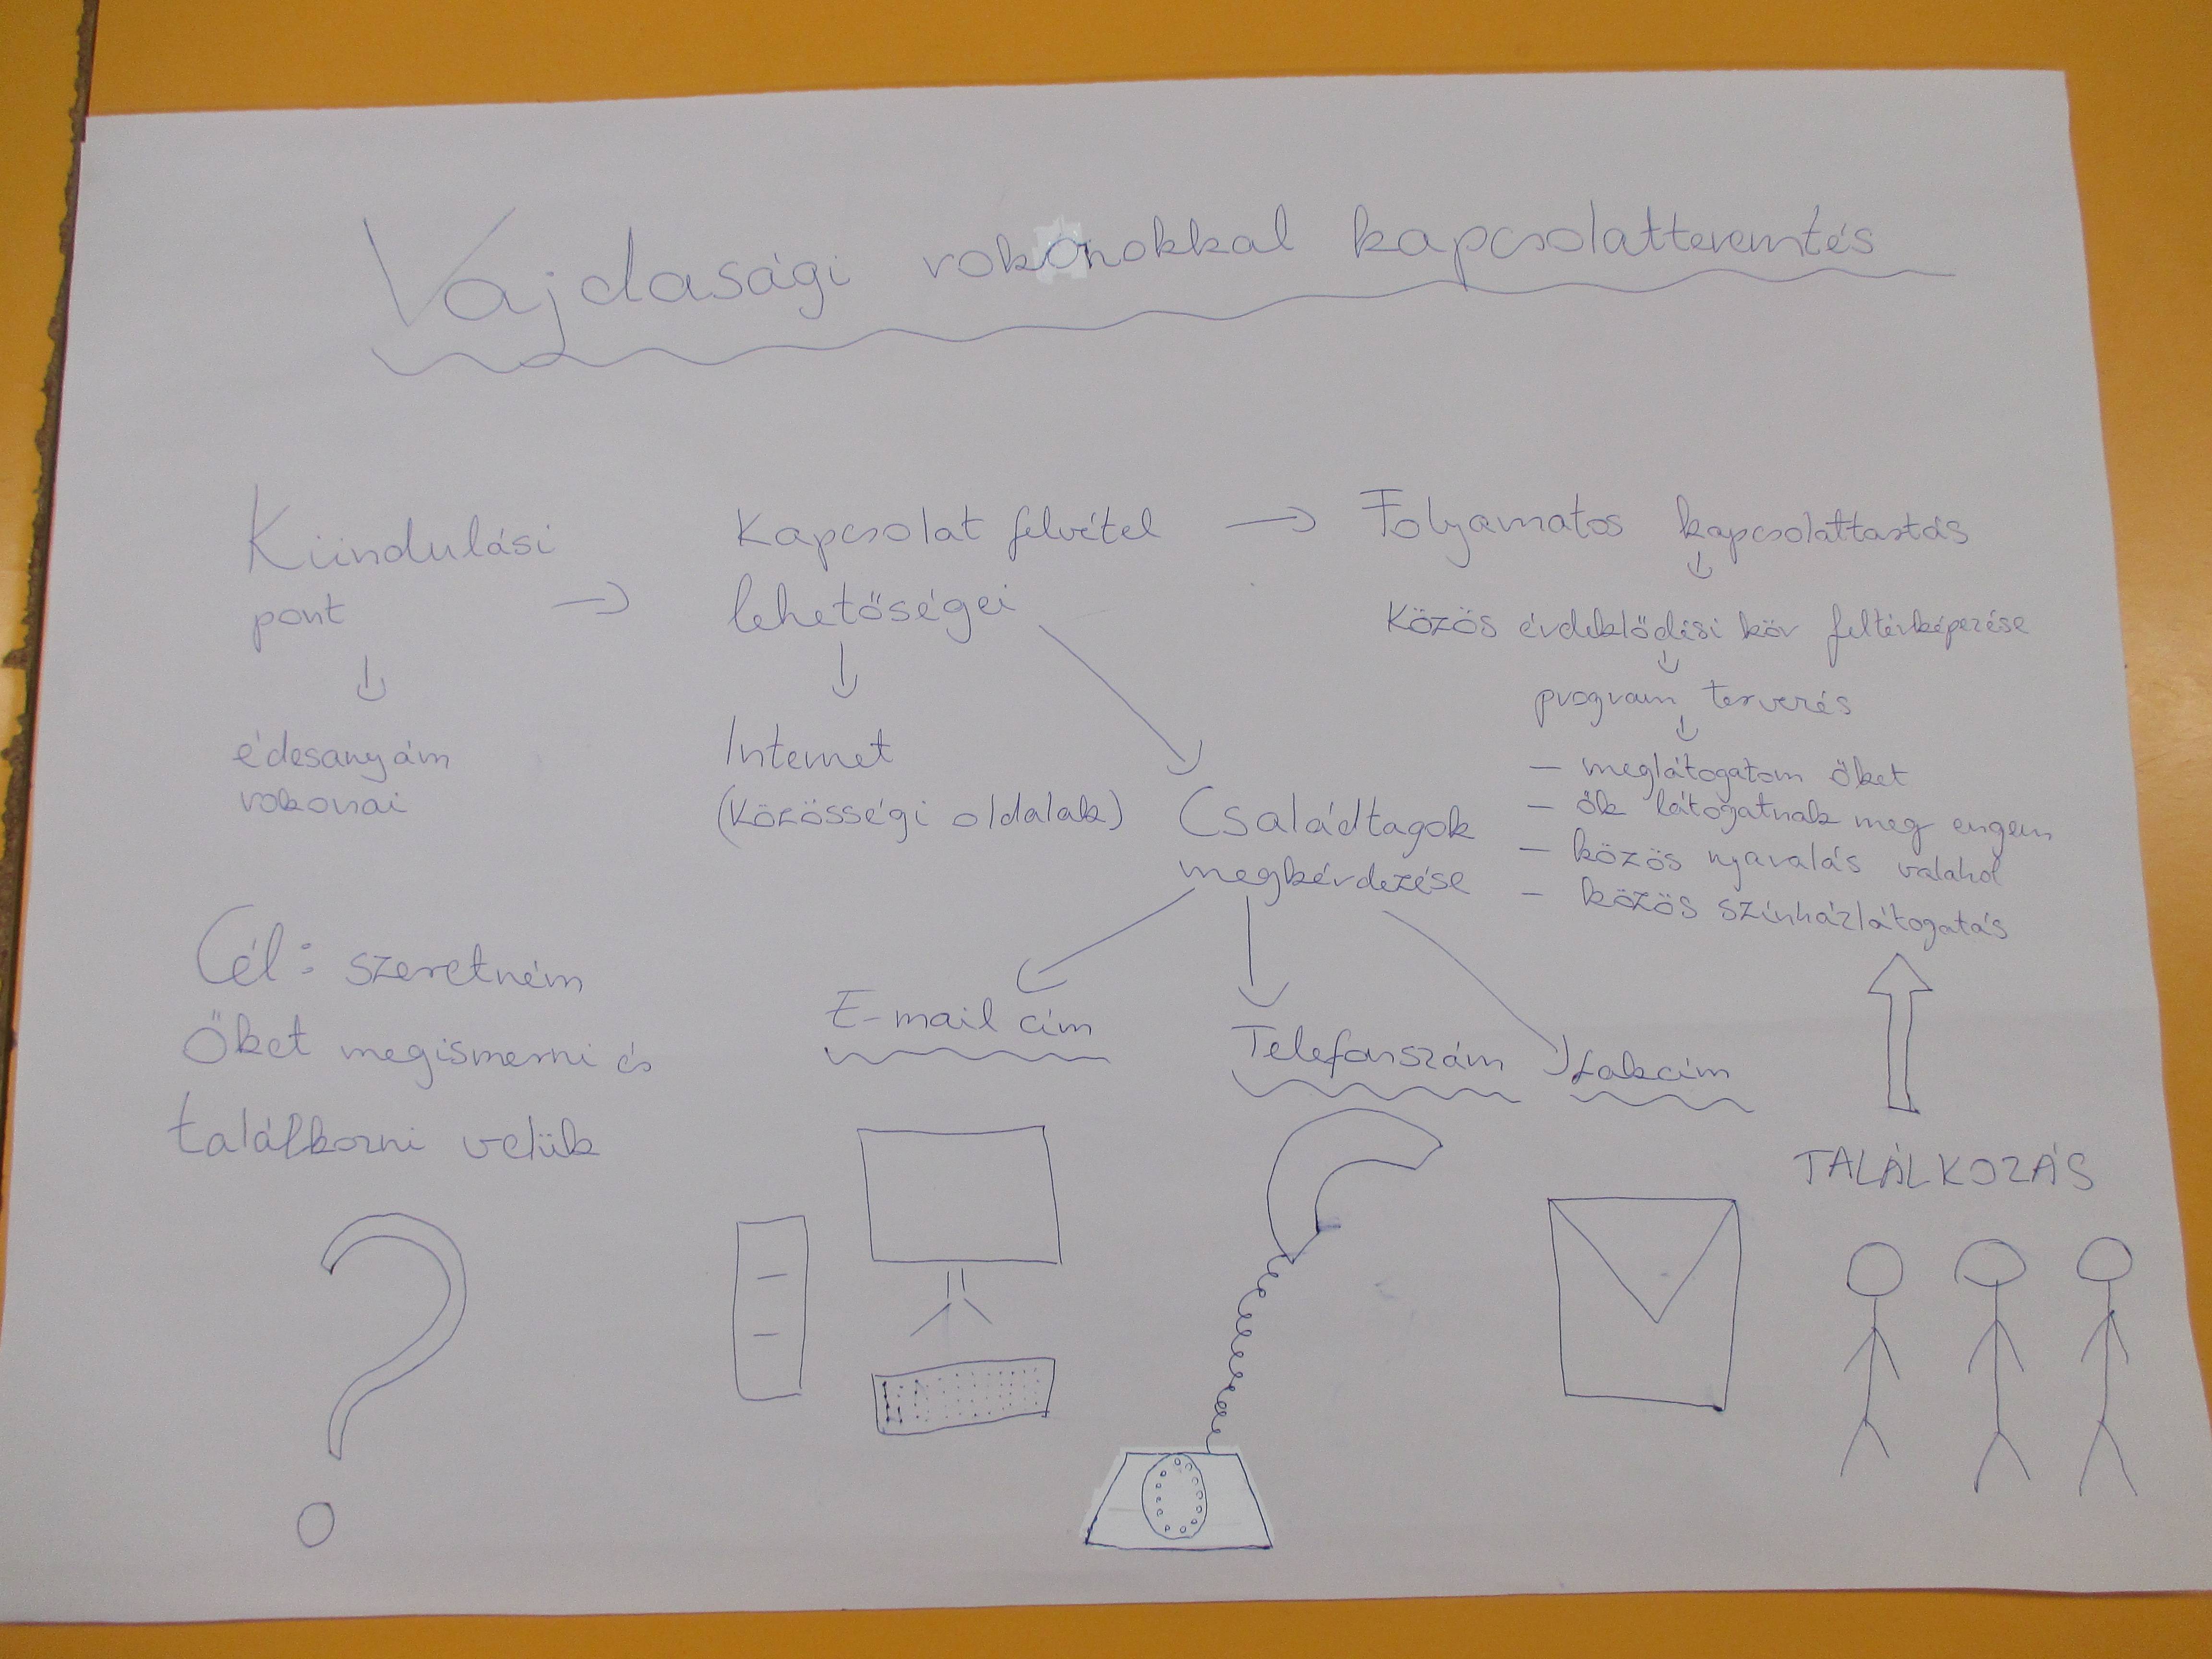 Vajdasági rokonokkal kapcsolatteremtés
Kiindulási
pont
édesanyám
rokonai
Cél: szeretném
Őket megismerni és
találkozni velük
Kapcsolat felvétel
lehetőségei
Internet
(közösségi oldalak)
Családtagok
megkérdezése
E-mail cím
Telefonszám
Lakcím
Folyamatos kapcsolattartás
Közös érdeklődési kör feltérképezése
program tervezés
– meglátogatom őket
– ők látogatnak meg engem
– közös nyaralás valahol
– közös színházlátogatás
TALÁLKOZÁS